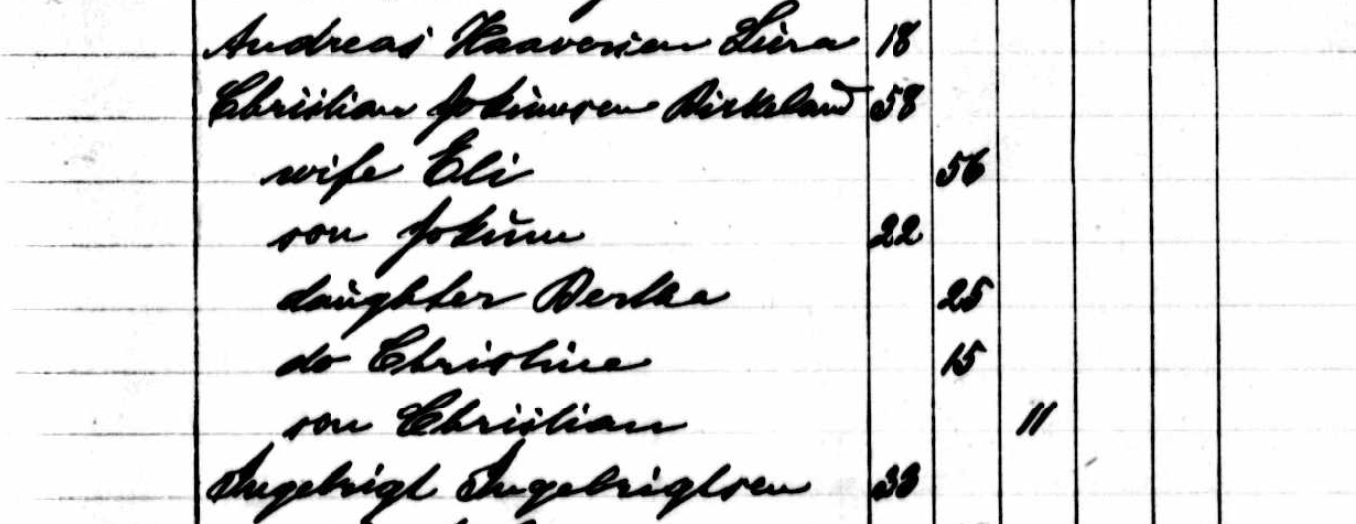 Andreas Haavorsen Liera 18
Christian Jokumsen Birkeland 58
wife Eli 56
son Jokum 22
daughter Bertha 25
do Christine 15
son Christian 11
Ingebrigt Ingebrigtsen 33